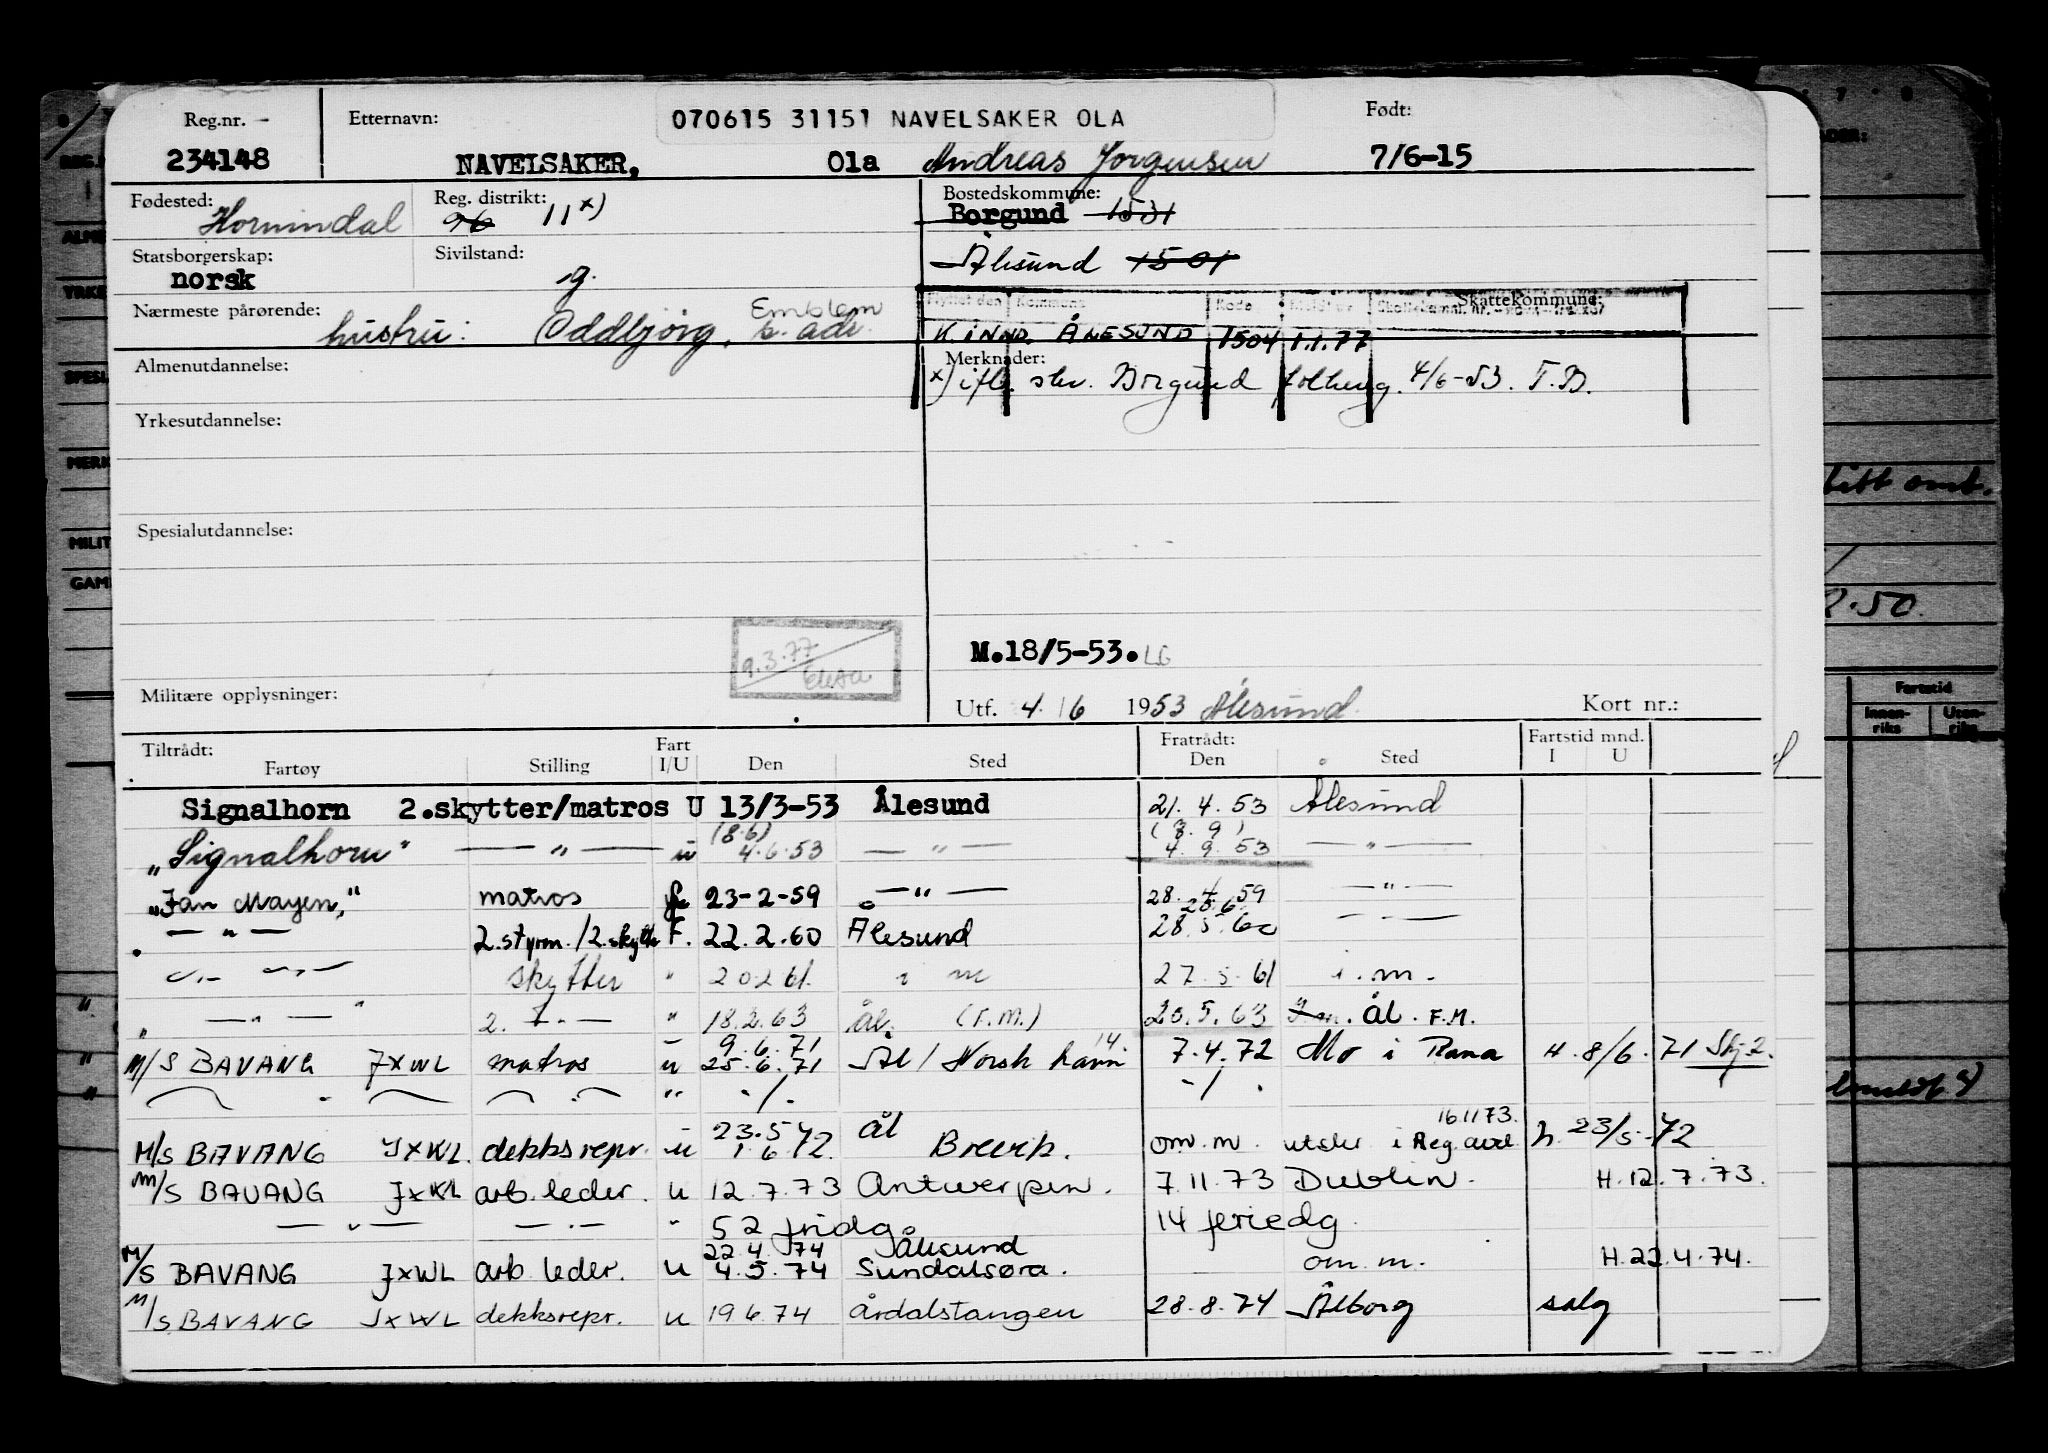 Reg.nr. Etternavn: 070615 31151 NAVELSAKER OLA Født:
234148 NAVELSAKER, Ola Andreas Jorgensen 7/6-15
Fødested: Hornindal Reg. distrikt: 96 11 x) Bostedskommune: Borgund 1531
Statsborgerskap: norsk Sivilstand: g. Ålesund 1501
Flyttet den Kommune Kode Skattekommune:
Nærmeste pårørende: hustru: Oddbjørg, s. adr. Emblem K. INND. ÅLESUND 1504 1.1.77
Almenutdannelse: Merknader:
x) ifl. skr. Borgund folkereg. 4/6-53. T.B.
Yrkesutdannelse:
Spesialutdannelse:
9.3.77
M.18/5-53. LG
Militære opplysninger: Utf. 4/6 1953 Ålesund Kort nr.:
Tiltrådt: Fart Fratrådt: Fartstid mnd.
Fartøy Stilling I/U Den Sted Den Sted I U
Signalhorn 2.skytter/matros U 13/3-53 Ålesund 21.4.53 Ålesund
(8.6) (3.9)
"Signalhorn" — " — u 4.6.53 — " — 4.9.53 — " —
"Jan Mayen," matros 23-2-59 — " — 28.4.59 — " —
25.6
— " — 2.styrm./2.skytter F. 22.2.60 Ålesund 28.5.60 — " —
— " — skytter " 20.2.61. i m 27.5.61 i.m.
— " — 2. — " — " 18.2.63 Ål. (F.M.) 20.5.63 I.m. Ål. F.M.
9.6.71 14.
M/S BAVANG JXWL matros u 25.6.71 Ål / Norsk havn 7.4.72 Mo i Rana H. 8/6.71 Skj.2.
" -/. -/.
23.5.72 Ål 16 11 73.
M/S BAVANG JXWL. dekksrepr. u 1.6.72. Brevik. om.m. utskr. i Reg.avd. h. 23/5-72
M/S BAVANG JXWL arb.leder. u 12.7.73 Antwerpen. 7.11.73 Dublin. H.12.7.73.
— " — — " — " 52 fridg 14 feriedg.
22.4.74 Ålesund
M/S BAVANG JXWL arb leder. u 4.5.74 Sundalsøra. om.m. H.22.4.74.
M/S BAVANG JXWL dekksrepr. u 19 6.74 årdalstangen 28.8.74 Ålborg salg
litt omt.
2.50.
Fartstid
Innen-riks Uten-riks